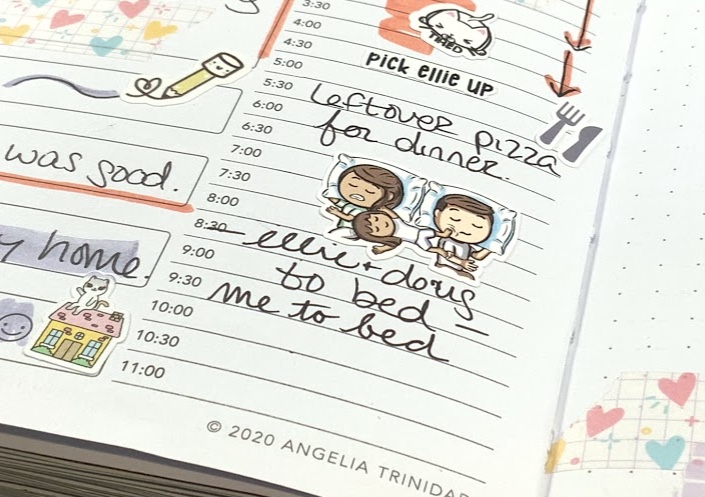 3:30
4:00
TIRED
4:30
PICK ELLIE UP
5:00
5:30
Leftover pizza
6:00
for dinner.
6:30
7:00
was good.
7:30
8:00
8:30 - ellie + doug
9:00
to bed -
home.
9:30 me to bed
10:00
10:30
11:00
© 2020 ANGELIA